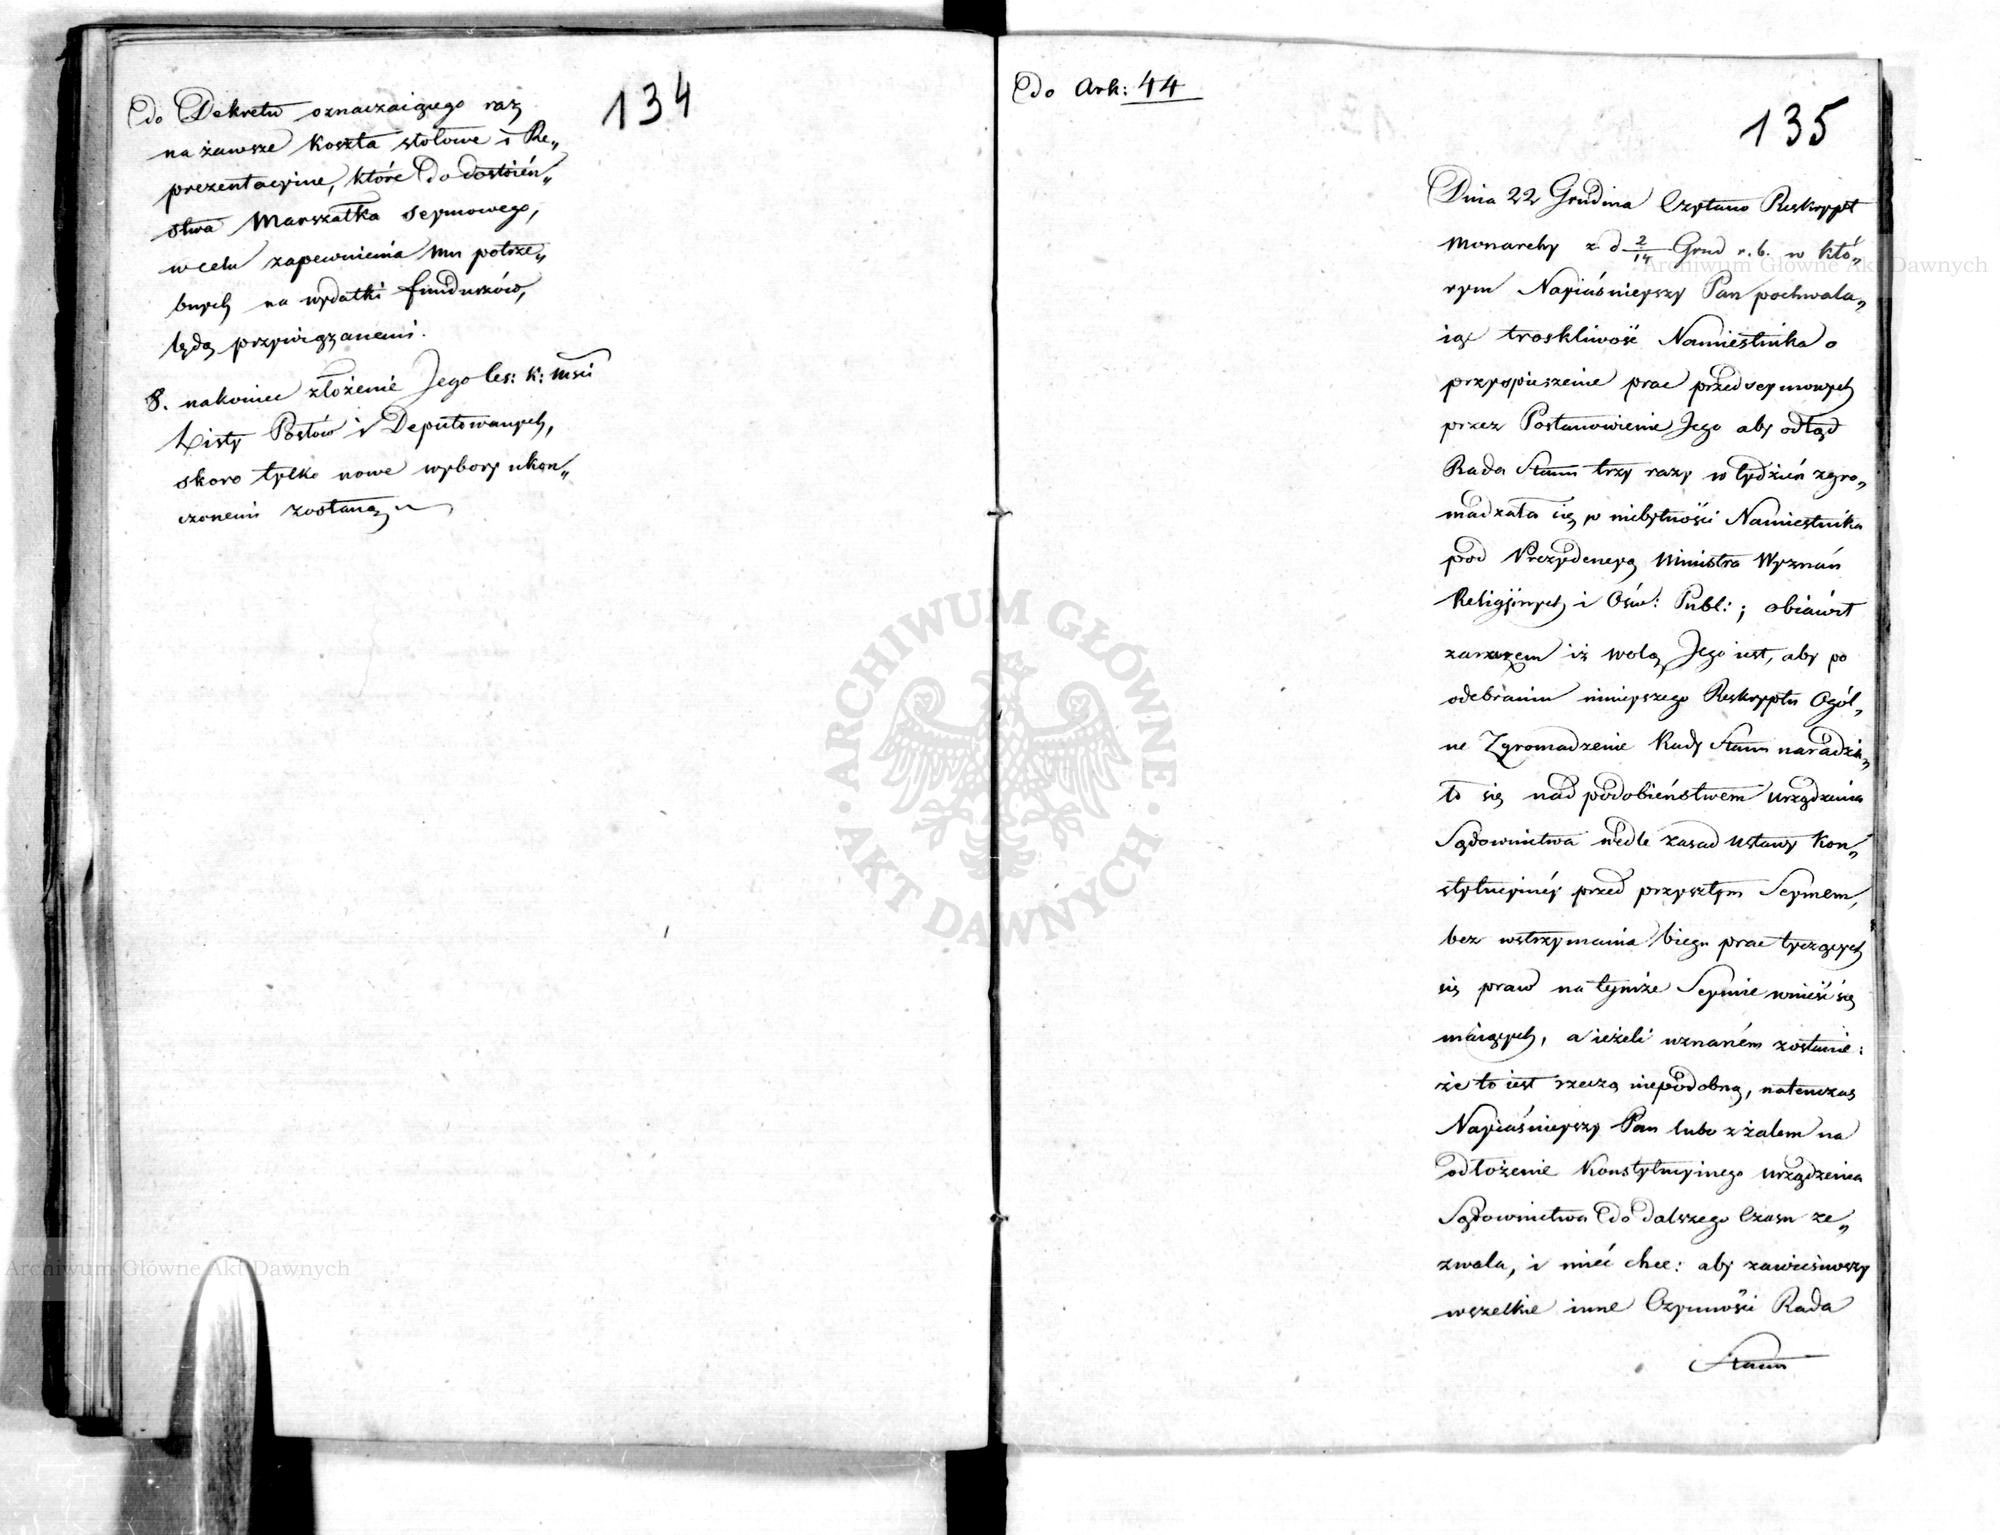 134
do Dekretu oznaczaiącego raz
na zawsze koszta stołowe i Re„
prezentacyine, które do dostoień„
stwa Marszałka seymowego,
w celu zapewnienia mu potrze„
bnych na wydatki funduszów,
będą przywiązanemi.
8. nakoniec złożenie Jego Ces: K: Mści
Listy Posłów i Deputowanych,
skoro tylko nowe wybory ukoń„
czonemi zostaną
Do Ark: 44
135
Dnia 22 Grudnia Czytano Reskrypt
Monarchy z d 2/14 Grud r. b. w któ„
rym Nayiaśnieyszy Pan pochwala„
iąc troskliwość Namiestnika o
przyspieszenie prac przedseymowych
przez Postanowienie Jego aby odtąd
Rada Stanu trzy razy w tydzień zgro„
madzała się w niebytności Namiestnika
pod Prezydencyą Ministra Wyznań
Religijnych i Ośw: Publ: ; obiawił
zarazem iż wolą Jego iest, aby po
odebraniu ninieyszego Reskryptu Ogól„
ne Zgromadzenie Rady Stanu naradzi„
ło się nad podobieństwem urządzenia
Sądownictwa wedle zasad Ustawy Kon„
stytucyinéy przed przyszłym Seymem,
bez wstrzymania biegu prac tyczących
się praw na tymże Seymie wnieść się
maiących, a ieżeli uznaném zostanie:
że to iest rzeczą niepodobną, natenczas
Nayiaśnieyszy Pan lubo z żalem na
odłożenie Konstytucyinego urządzenia
Sądownictwa do dalszego Czasu ze„
zwala, i mieć chce: aby zawiesiwszy
wszelkie inne Czynności Rada
Stanu
Archiwum Główne Akt Dawnych
Archiwum Główne Akt Dawnych
ARCHIWUM GŁÓWNE
AKT DAWNYCH